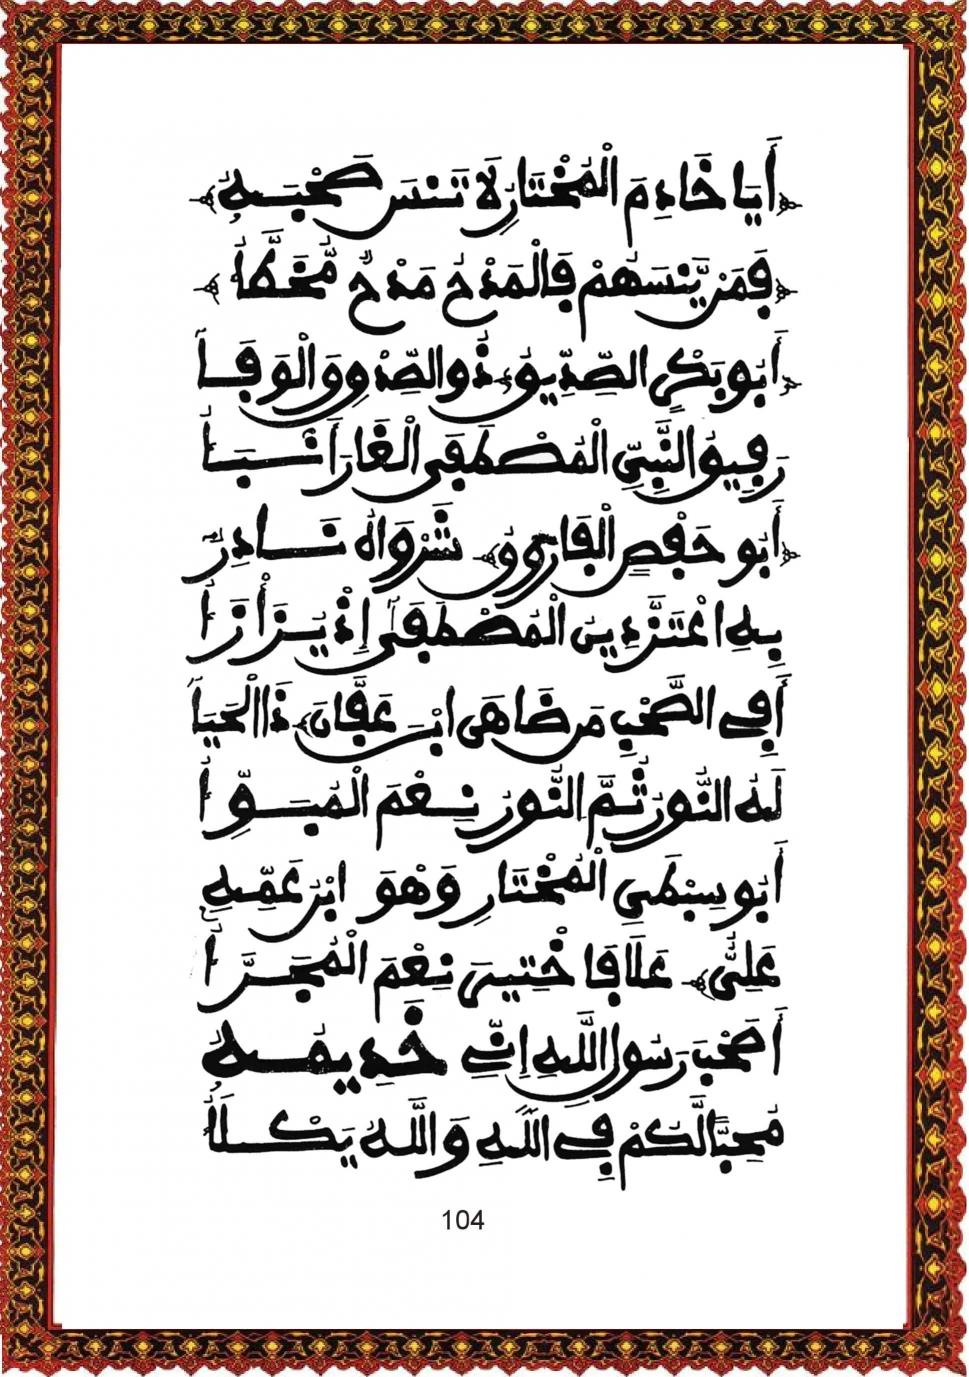 أَيَا خَادِمَ الْمُخْتَارِ لَا تَنْسَ صَحْبَهُ
فَمَنْ يَّنْسَهُمْ فَالْمَدْحُ مَدْحٌ مُّخَطَّأُ
أَبُو بَكْرٍ الصِّدِّيقُ ذُو الصِّدْقِ وَالْوَفَا
رَفِيقُ النَّبِيِّ الْمُصْطَفَى الْغَارَ
أَبُو حَفْصٍ الْفَارُوقُ شَرْوَاهُ نَادِرٌ
بِهِ اعْتَزَّ دِينُ الْمُصْطَفَى إِذْ
أَفِي الصَّحْبِ مَن ضَاهَى ابْنَ عَفَّانَ ذَا الْحَيَا
لَهُ النُّورُ ثُمَّ النُّورُ نِعْمَ الْمُبَوَّأُ
أَبُو سِبْطَيِ الْمُخْتَارِ وَهْوَ ابْنُ عَمِّهِ
عَلِيُّ عَلَا فَاخْتِيرَ نِعْمَ الْمُجَرَّأُ
أَصَحْبَ رَسُولِ اللَّهِ إِنِّي خَدِيمُهُ
مُحِبًّا لَكُمْ فِي اللَّهِ وَاللَّهُ يَكْلَأُ
104